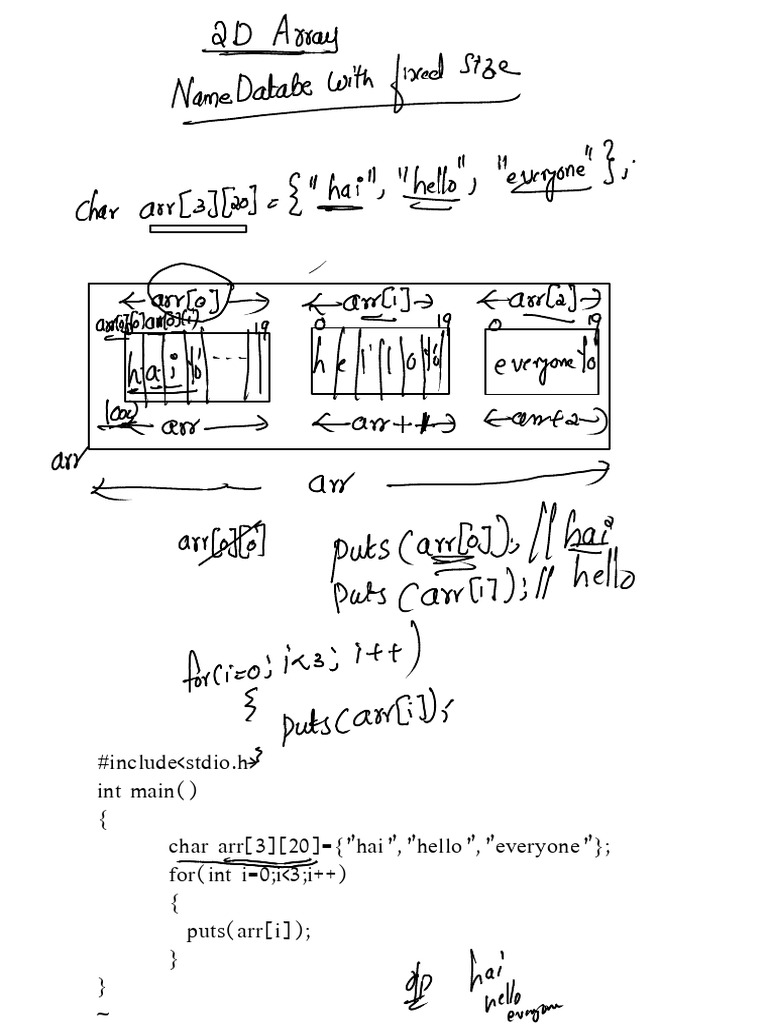 2D Array
Name Databe with fixed size
char arr[3][20] = {"hai", "hello", "everyone"};
arr[0] arr[1] arr[2]
arr[0][0] arr[0][1] 19 0 19 0 19
h a i \0 ---- h e l l o \0 everyone \0
100 arr arr+1 arr+2
arr
arr
arr[0][0] puts(arr[0]); // hai
puts(arr[1]); // hello
for(i=0; i<3; i++)
{
puts(arr[i]);
}
#include<stdio.h>
int main()
{
char arr[3][20]={"hai","hello","everyone"};
for(int i=0;i<3;i++)
{
puts(arr[i]);
}
}
~
o/p hai
hello
everyone